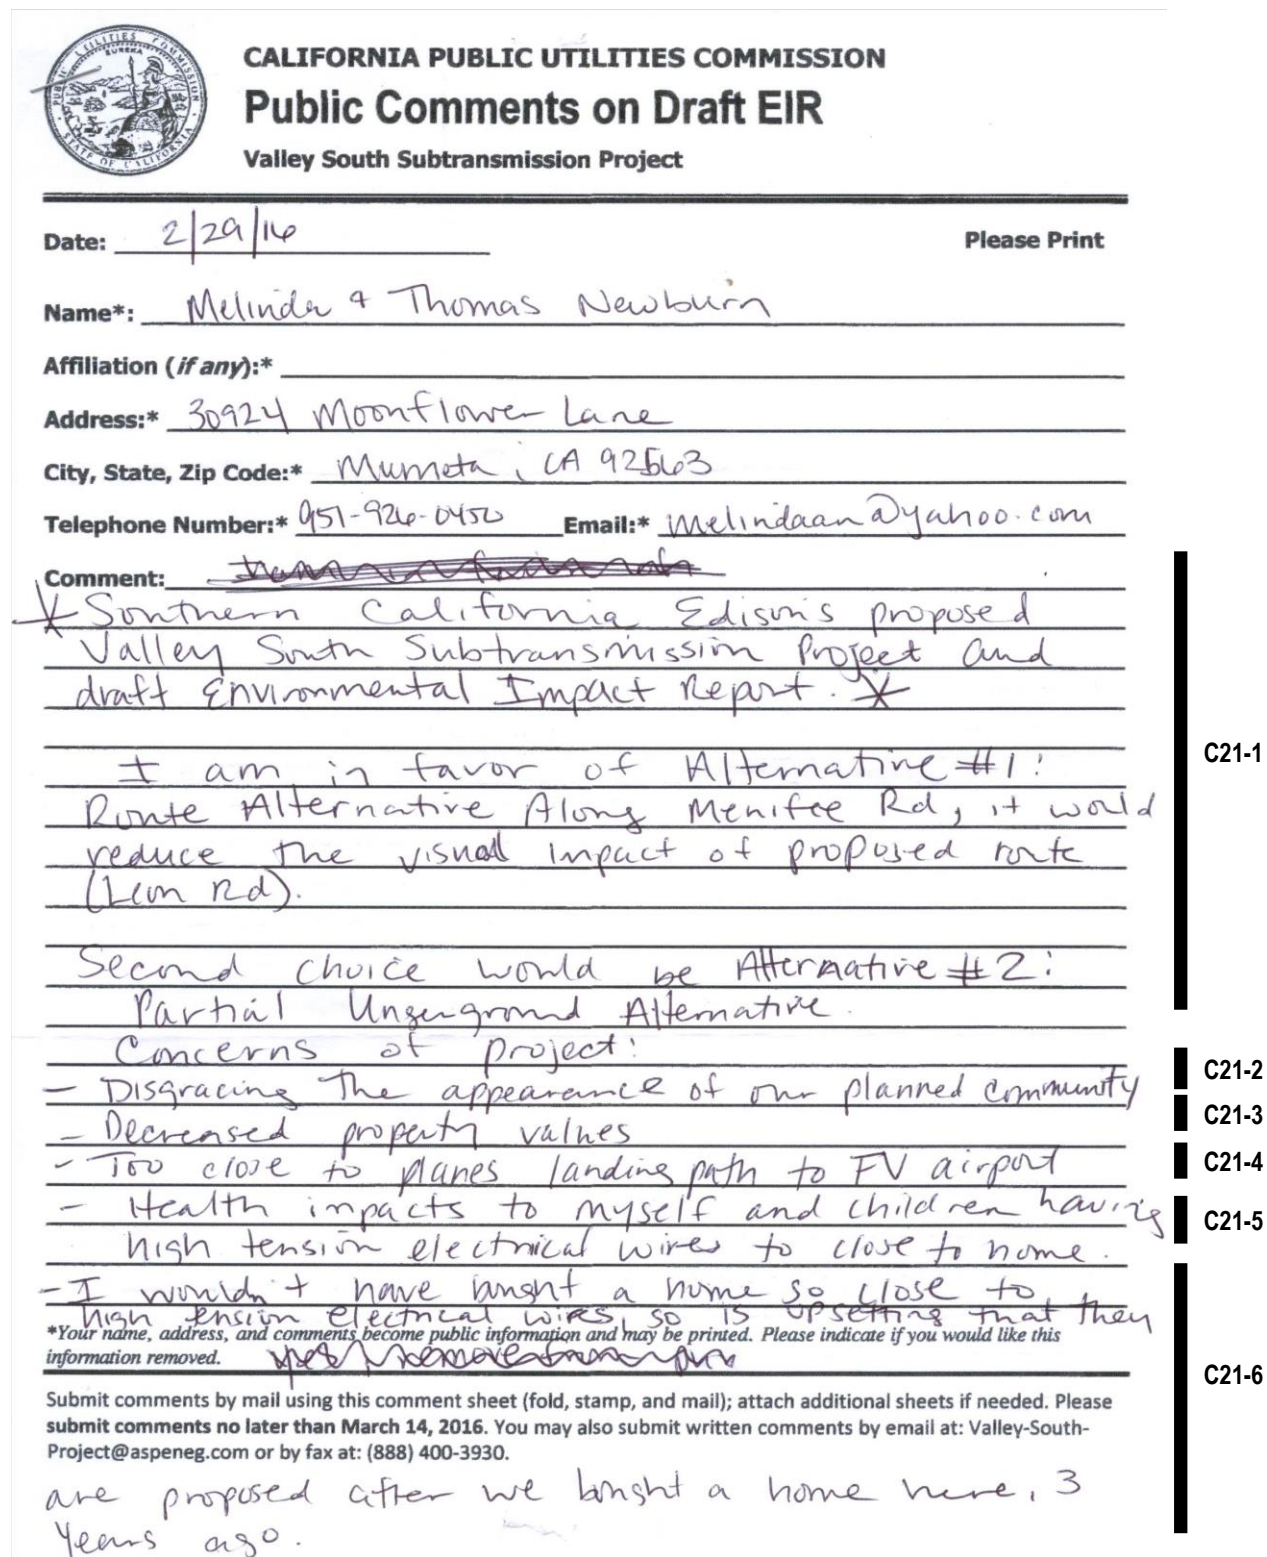 CALIFORNIA PUBLIC UTILITIES COMMISSION
Public Comments on Draft EIR
Valley South Subtransmission Project
PUBLIC UTILITIES COMMISSION
EUREKA
STATE OF CALIFORNIA
Date: 2/29/16 Please Print
Name*: Melinda & Thomas Newburn
Affiliation (if any):*
Address:* 30924 Moonflower Lane
City, State, Zip Code:* Murrieta, CA 92563
Telephone Number:* 951-926-0450 Email:* melindaan@yahoo.com
Comment:
* Southern California Edison's proposed
Valley South Subtransmission Project and
draft Environmental Impact Report. *
I am in favor of Alternative #1:
Route Alternative Along Menifee Rd, it would
reduce the visual impact of proposed route
(Leon Rd).
C21-1
Second choice would be Alternative #2:
Partial Ungerground Alternative.
Concerns of project:
- Disgracing the appearance of our planned community
C21-2
- Decreased property values
C21-3
- Too close to planes landing path to FV airport
C21-4
- Health impacts to myself and children having
high tension electrical wires to close to home.
C21-5
- I wouldn't have bought a home so close to
high tension electrical wires, so is upsetting that they
*Your name, address, and comments become public information and may be printed. Please indicate if you would like this
information removed.
C21-6
Submit comments by mail using this comment sheet (fold, stamp, and mail); attach additional sheets if needed. Please
submit comments no later than March 14, 2016. You may also submit written comments by email at: Valley-South-
Project@aspeneg.com or by fax at: (888) 400-3930.
are proposed after we bought a home here, 3
years ago.